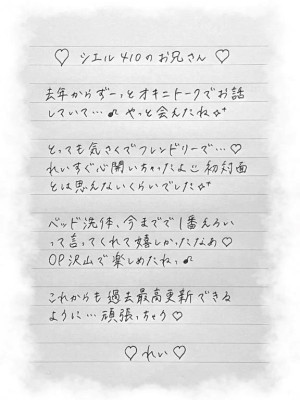 ♡ シエル410のお兄さん ♡
去年からずーっとオキニトークでお話
していて…♪ やっと会えたね☆⁺
とっても気さくでフレンドリーで…♡
れいすぐ心開いちゃったよ☺初対面
とは思えないくらいでした☆⁺
ベッド洗体、今までで1番えろい
って言ってくれて嬉しかったなあ♡
OP沢山で楽しめたねっ♪
これからも過去最高更新できる
ように…頑張っちゃう♡
♡ れい ♡